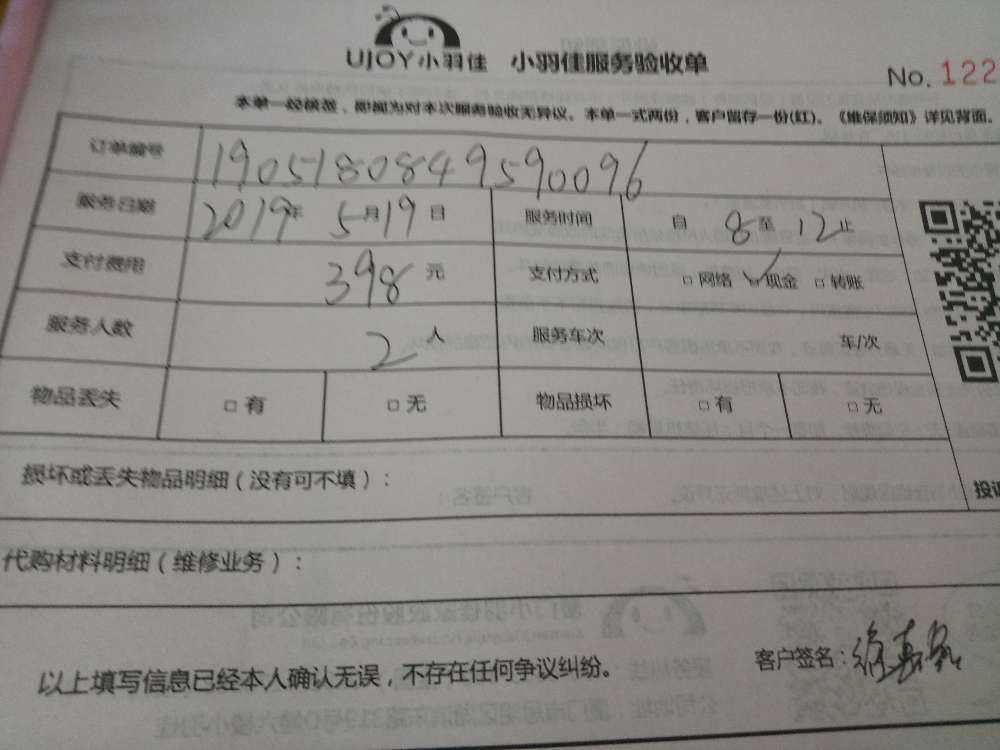 UJOY小羽佳 小羽佳服务验收单
No. 122
本单一经核签，即视为对本次服务验收无异议。本单一式两份，客户留存一份(红)。《维保须知》详见背面。
订单编号 1905180849590096
服务日期 2019年 5月19日 服务时间 自 8 至 12 止
支付费用 398 元 支付方式 □ 网络 ☑ 现金 □ 转账
服务人数 2 人 服务车次 车/次
物品丢失 □ 有 □ 无 物品损坏 □ 有 □ 无
损坏或丢失物品明细（没有可不填）：
投诉
代购材料明细（维修业务）：
以上填写信息已经本人确认无误，不存在任何争议纠纷。 客户签名：